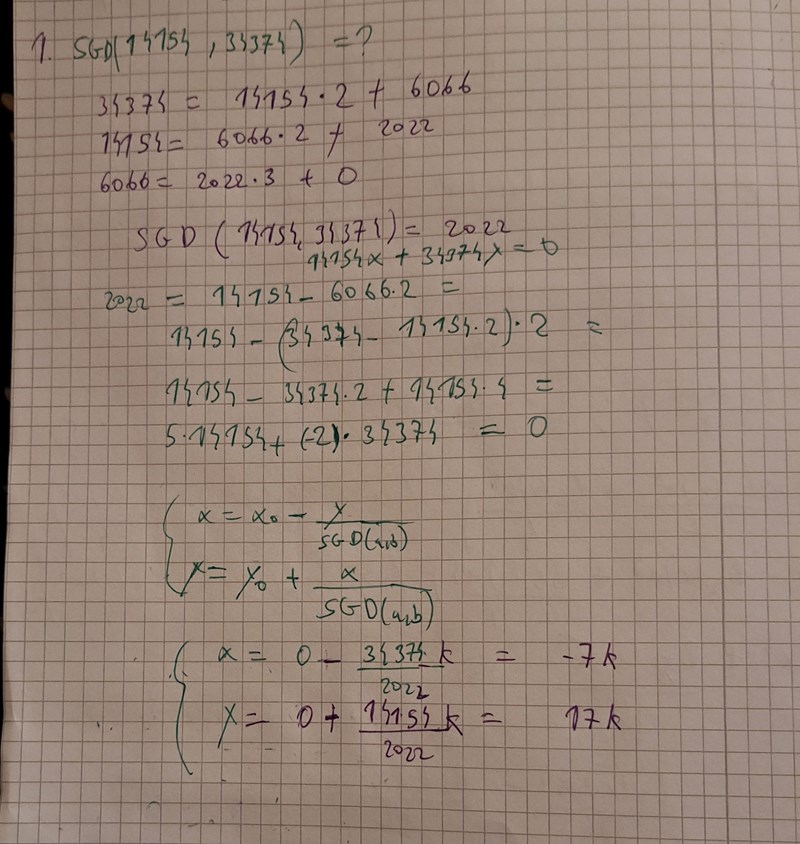 1. SGD(14154, 34374) = ?
34374 = 14154·2 + 6066
14154 = 6066·2 + 2022
6066 = 2022·3 + 0
SGD (14154, 34374) = 2022
14154x + 34374y = 0
2022 = 14154 - 6066·2 =
14154 - (34374 - 14154·2)·2 =
14154 - 34374·2 + 14154·4 =
5·14154 + (-2)·34374 = 0
{ x = x₀ - y/SGD(a,b)
y = y₀ + x/SGD(a,b)
{ x = 0 - 34374k/2022 = -7k
y = 0 + 14154k/2022 = 17k